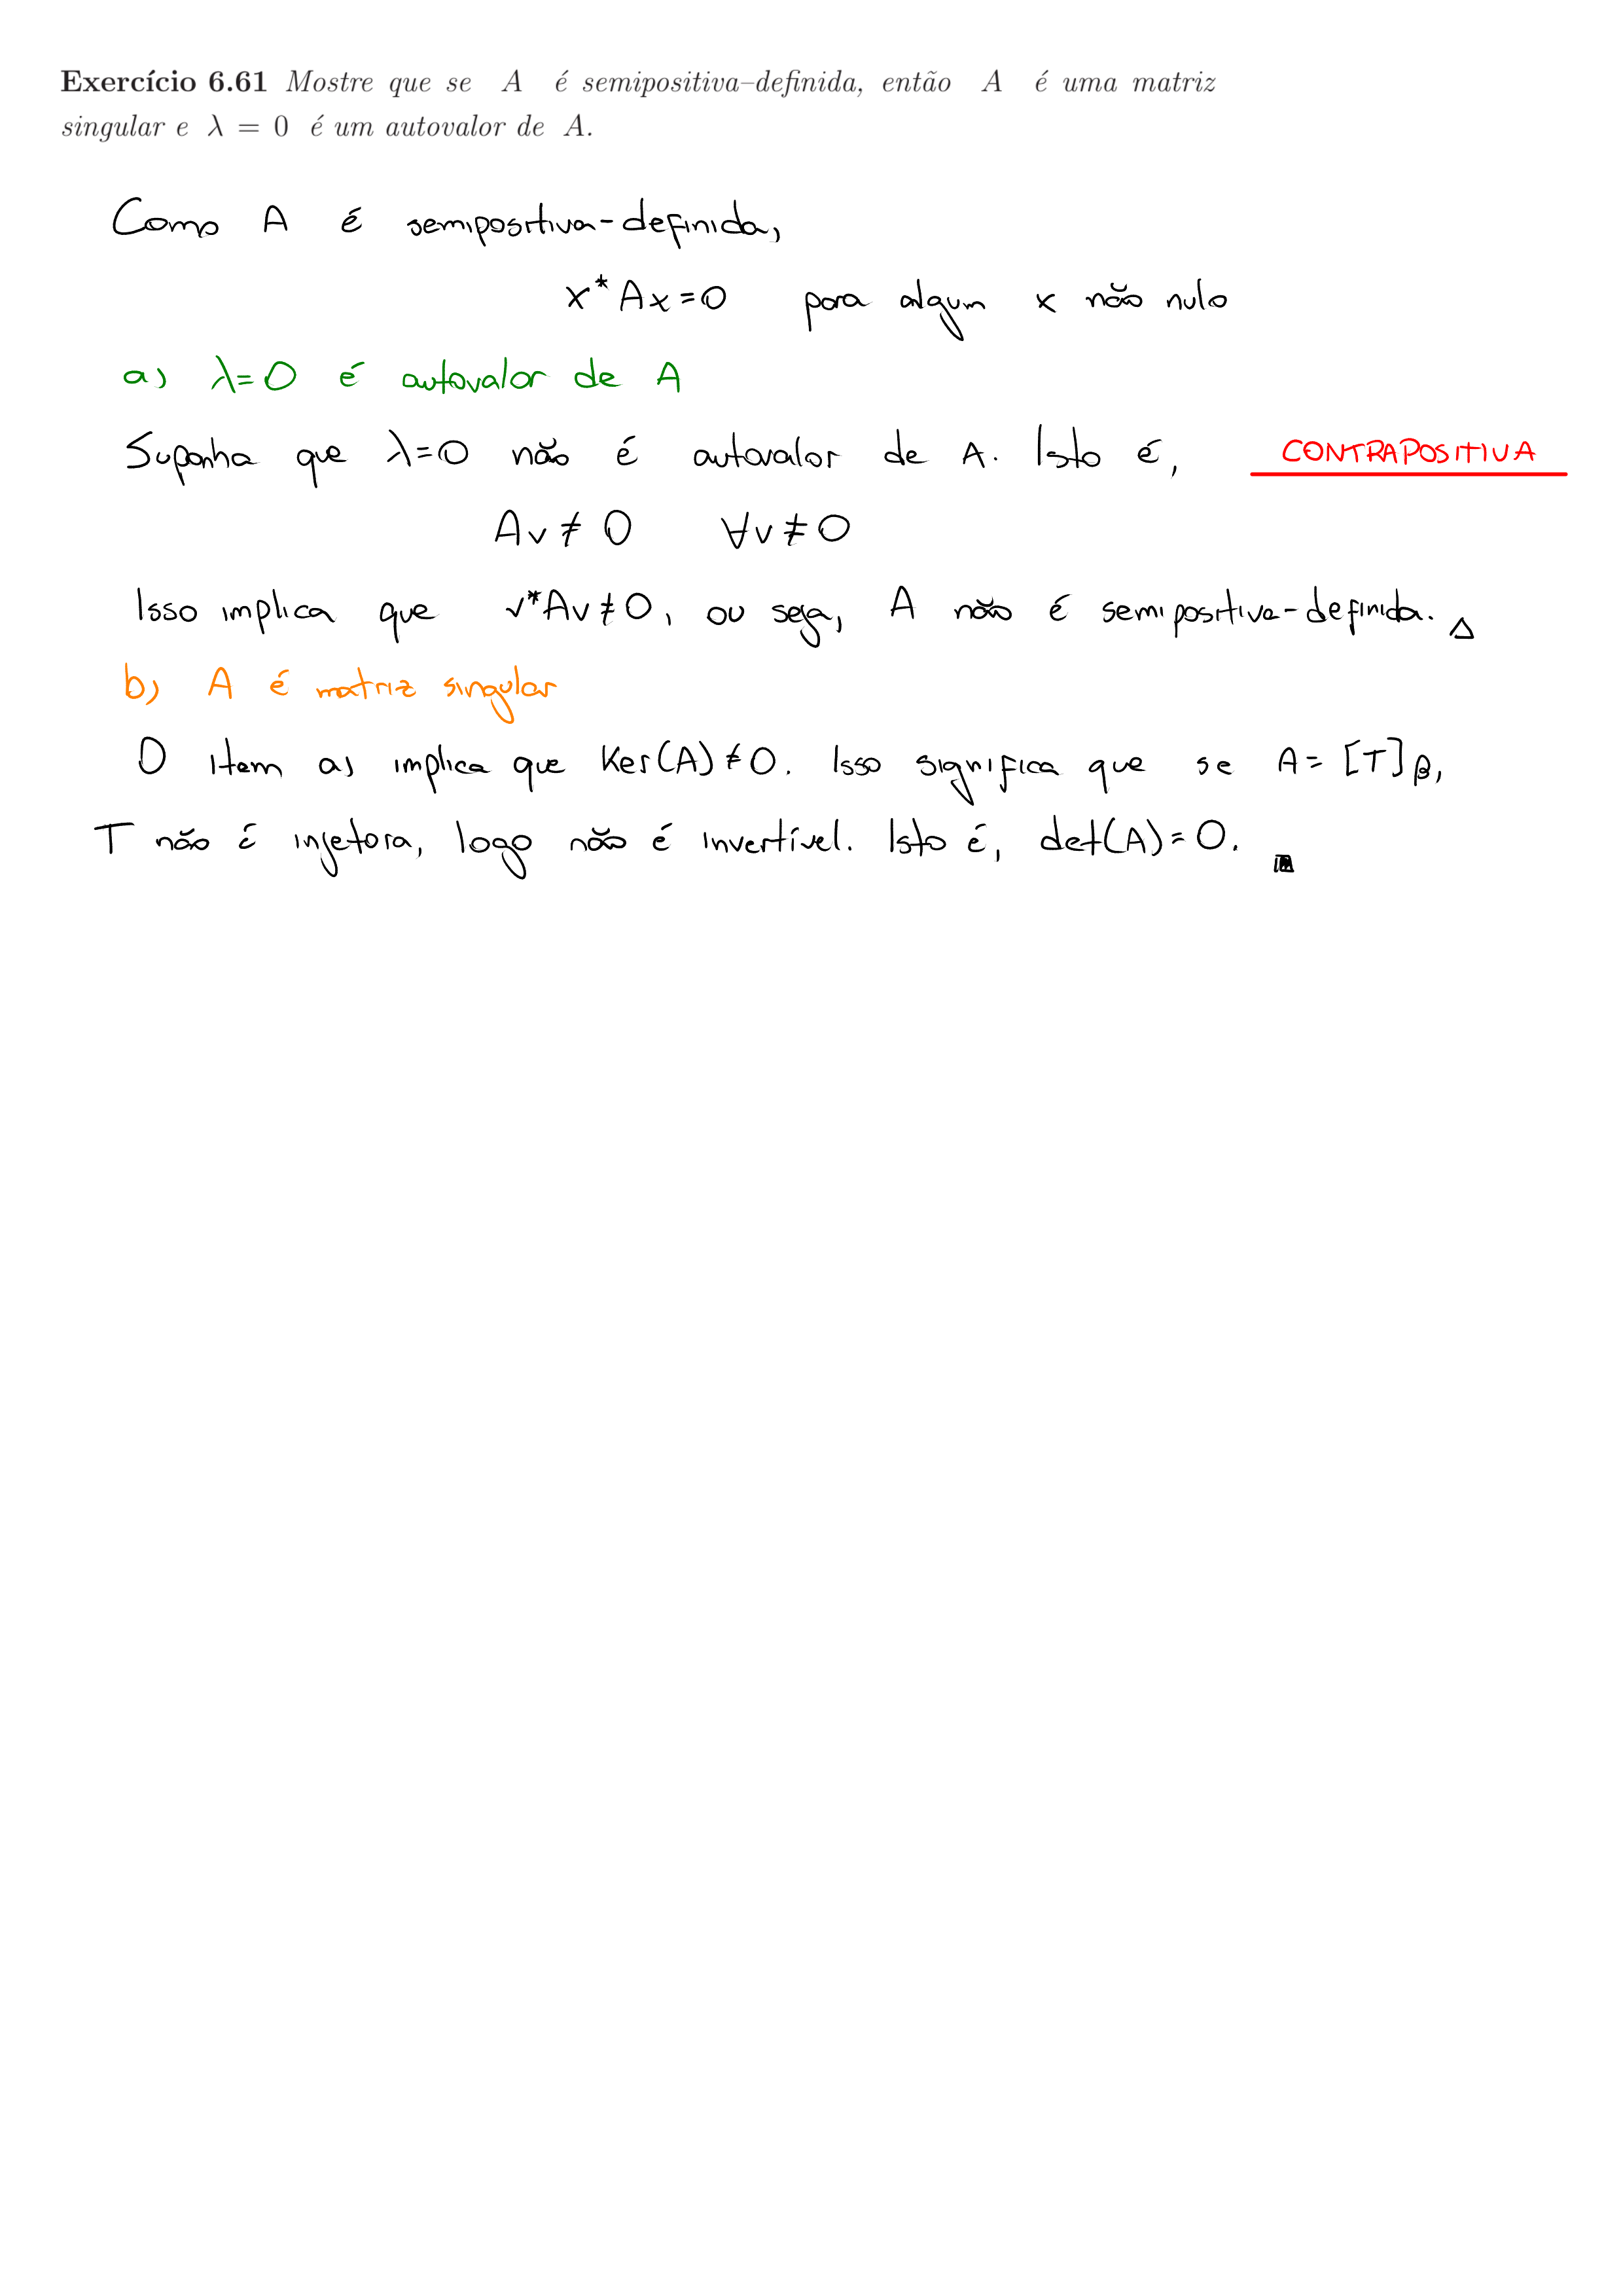 Exercício 6.61 Mostre que se A é semipositiva–definida, então A é uma matriz
singular e λ = 0 é um autovalor de A.
Como A é semipositiva-definida,
x* Ax = 0 para algum x não nulo
a) λ=0 é autovalor de A
Suponha que λ=0 não é autovalor de A. Isto é, CONTRAPOSITIVA
Av ≠ 0 ∀v ≠ 0
Isso implica que v*Av ≠ 0, ou seja, A não é semipositiva-definida. △
b) A é matriz singular
O item a) implica que Ker(A) ≠ 0. Isso significa que se A = [T]β,
T não é injetora, logo não é invertível. Isto é, det(A) = 0. ■